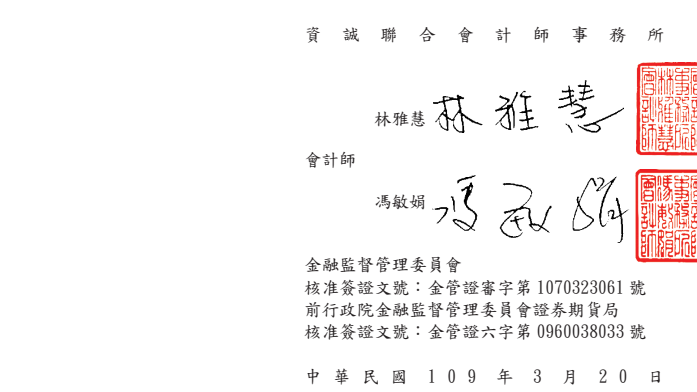 資誠聯合會計師事務所
林雅慧 林雅慧
會計師
馮敏娟 馮敏娟
金融監督管理委員會
核准簽證文號：金管證審字第 1070323061 號
前行政院金融監督管理委員會證券期貨局
核准簽證文號：金管證六字第 0960038033 號
中華民國 109 年 3 月 20 日